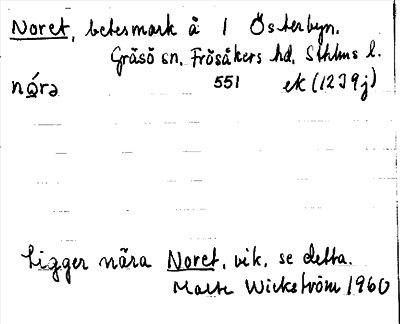 Noret, betesmark å 1 Österbyn.
Gräsö sn, Frösåkers hd, Sthlms l.
nǫ́rə 551 ek (12J9j)
Ligger nära Noret, vik, se detta.
Marte Wickström 1960